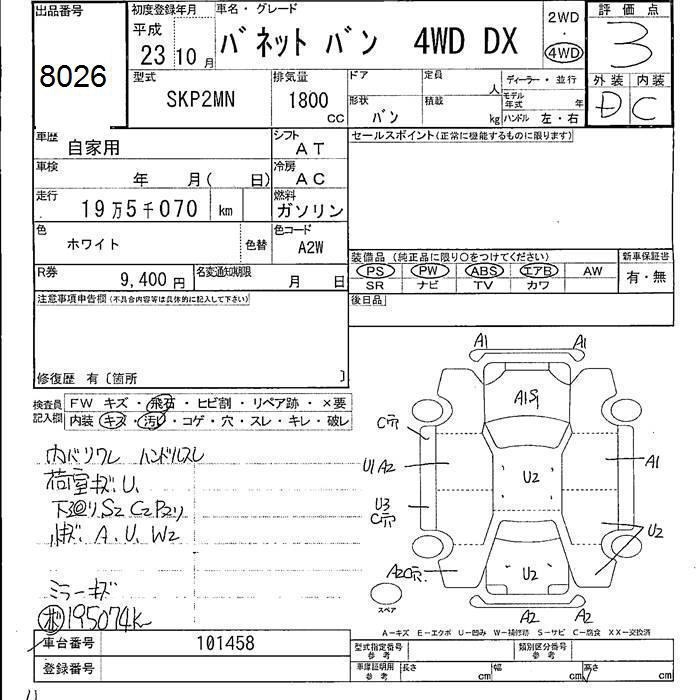 出品番号
8026
初度登録年月
平成
23 10月
車名・グレード
バネットバン 4WD DX
2WD
・
4WD
評価点
3
外装 内装
D C
型式
SKP2MN
排気量
1800
cc
ドア
定員
人
ディーラー・並行
形状
バン
積載
kg
モデル年式
年
ハンドル 左・右
車歴
自家用
シフト
AT
セールスポイント(正常に機能するものに限ります)
車検
年 月( 日)
冷房
AC
走行
19万5千070 km
燃料
ガソリン
色
ホワイト
色替
色コード
A2W
装備品 (純正品に限り○をつけてください)
新車保証書
PS PW ABS エアB AW
有・無
SR ナビ TV カワ
R券
9,400 円
名変通知期限
月 日
後日品
注意事項申告欄(不具合内容等は具体的に記入して下さい)
修復歴 有〔箇所 〕
検査員記入欄
FW キズ・飛石・ヒビ割・リペア跡・×要
内装 キズ・汚れ・コゲ・穴・スレ・キレ・破レ
内バリワレ ハンドルスレ
荷室キズ.U.
下廻りS2 C2 P2リ
小キズ A.U.W2
ミラーキズ
195074k
A1 A1
A1S
C穴
U1 A2
A1
U2
U3
C穴
U2
A2C穴
U2
A2 A2
スペア
A-キズ E-エクボ U-凹み W-補修跡 S-サビ C-腐食 XX-交換済
車台番号
101458
型式指定番号
参考
類別区分番号
参考
登録番号
車庫証明用
参考
長さ cm 幅 cm 高さ cm